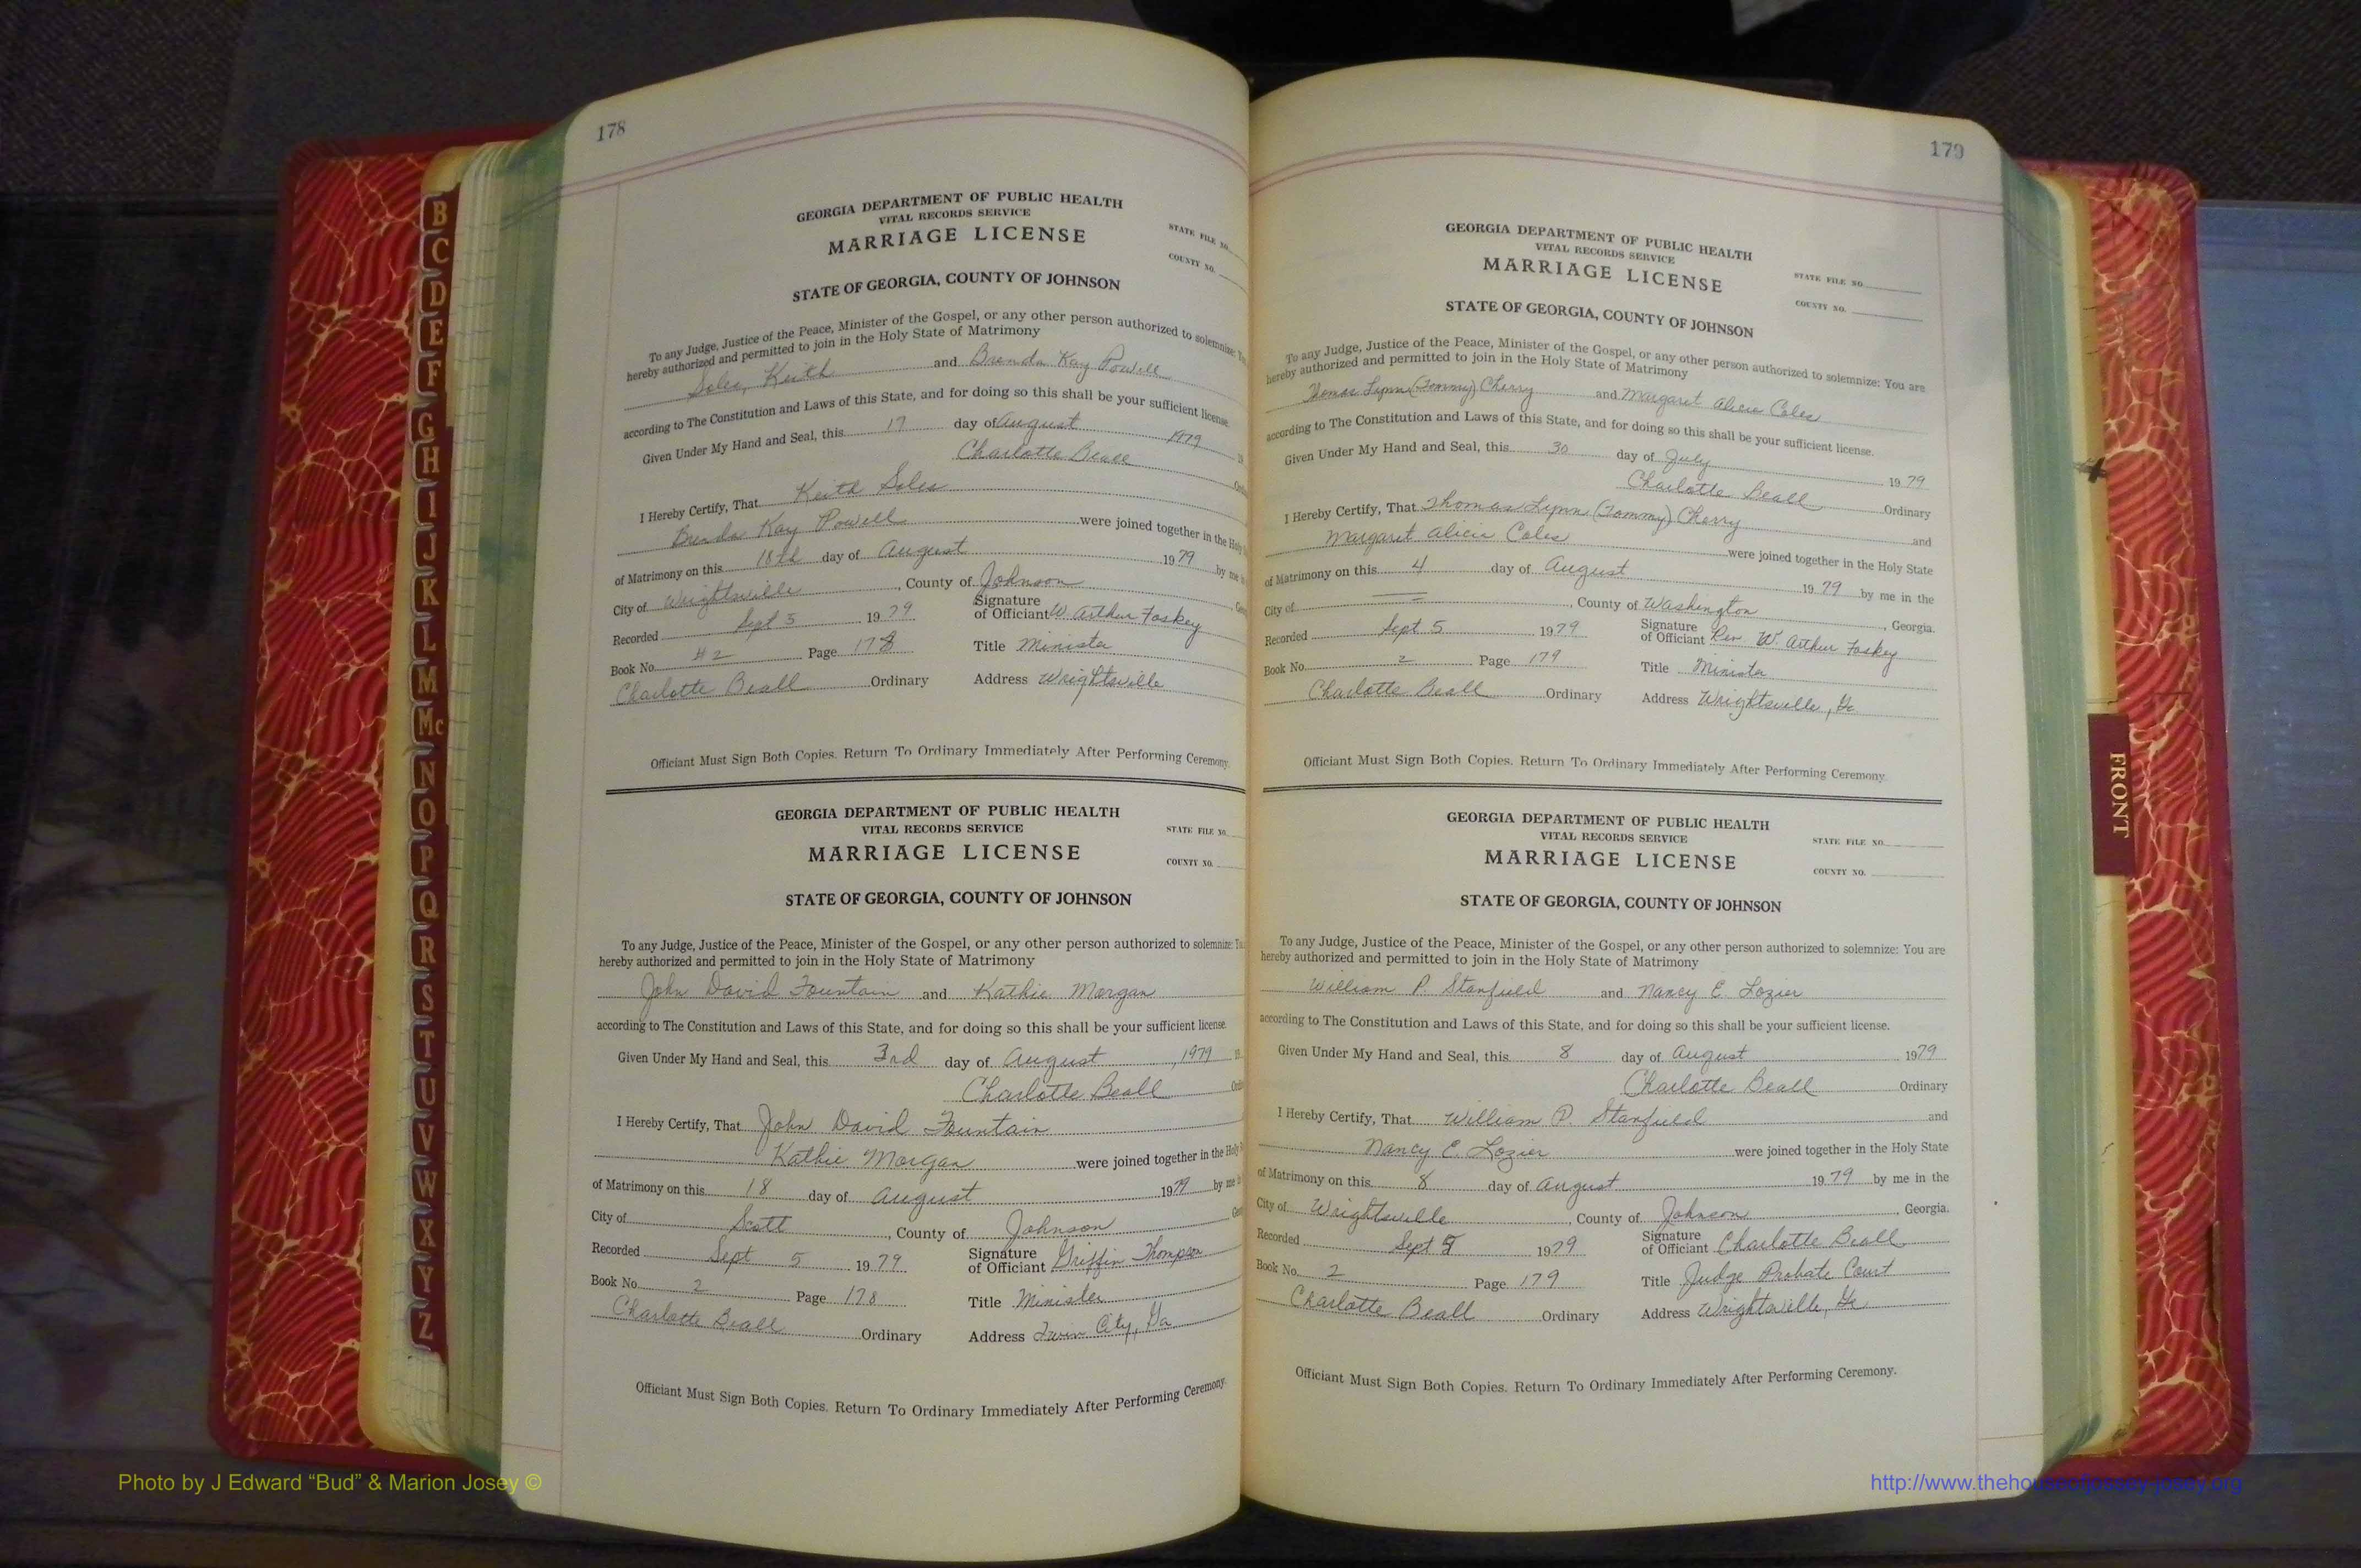 178
GEORGIA DEPARTMENT OF PUBLIC HEALTH
VITAL RECORDS SERVICE
MARRIAGE LICENSE
STATE FILE NO.
COUNTY NO.
STATE OF GEORGIA, COUNTY OF JOHNSON
To any Judge, Justice of the Peace, Minister of the Gospel, or any other person authorized to solemnize:
hereby authorized and permitted to join in the Holy State of Matrimony
Soles, Keith and Brenda Kay Powell
according to The Constitution and Laws of this State, and for doing so this shall be your sufficient license.
Given Under My Hand and Seal, this 17 day of August 1979
Charlotte Beall
I Hereby Certify, That Keith Soles
Brenda Kay Powell were joined together in the Holy
of Matrimony on this 18th day of August 1979 by me
City of Wrightsville, County of Johnson
Recorded Sept 5 1979 Signature of Officiant W. Arthur Foskey
Book No. #2 Page 178 Title Minister
Charlotte Beall Ordinary Address Wrightsville
Officiant Must Sign Both Copies. Return To Ordinary Immediately After Performing Ceremony.
GEORGIA DEPARTMENT OF PUBLIC HEALTH
VITAL RECORDS SERVICE
MARRIAGE LICENSE
STATE FILE NO.
COUNTY NO.
STATE OF GEORGIA, COUNTY OF JOHNSON
To any Judge, Justice of the Peace, Minister of the Gospel, or any other person authorized to solemnize:
hereby authorized and permitted to join in the Holy State of Matrimony
John David Fountain and Kathie Morgan
according to The Constitution and Laws of this State, and for doing so this shall be your sufficient license.
Given Under My Hand and Seal, this 3rd day of August, 1979
Charlotte Beall
I Hereby Certify, That John David Fountain
Kathie Morgan were joined together in the Holy
of Matrimony on this 18 day of August 1979 by me
City of Scott, County of Johnson
Recorded Sept 5 1979 Signature of Officiant Griffin Thompson
Book No. 2 Page 178 Title Minister
Charlotte Beall Ordinary Address Twin City, Ga
Officiant Must Sign Both Copies. Return To Ordinary Immediately After Performing Ceremony.
179
GEORGIA DEPARTMENT OF PUBLIC HEALTH
VITAL RECORDS SERVICE
MARRIAGE LICENSE
STATE FILE NO.
COUNTY NO.
STATE OF GEORGIA, COUNTY OF JOHNSON
To any Judge, Justice of the Peace, Minister of the Gospel, or any other person authorized to solemnize: You are
hereby authorized and permitted to join in the Holy State of Matrimony
Thomas Lynn (Tommy) Cherry and Margaret Alicia Coles
according to The Constitution and Laws of this State, and for doing so this shall be your sufficient license.
Given Under My Hand and Seal, this 30 day of July 1979
Charlotte Beall Ordinary
I Hereby Certify, That Thomas Lynn (Tommy) Cherry and
Margaret Alicia Coles were joined together in the Holy State
of Matrimony on this 4 day of August 1979 by me in the
City of , County of Washington, Georgia.
Recorded Sept 5 1979 Signature of Officiant Rev. W. Arthur Foskey
Book No. 2 Page 179 Title Minister
Charlotte Beall Ordinary Address Wrightsville, Ga
Officiant Must Sign Both Copies. Return To Ordinary Immediately After Performing Ceremony.
GEORGIA DEPARTMENT OF PUBLIC HEALTH
VITAL RECORDS SERVICE
MARRIAGE LICENSE
STATE FILE NO.
COUNTY NO.
STATE OF GEORGIA, COUNTY OF JOHNSON
To any Judge, Justice of the Peace, Minister of the Gospel, or any other person authorized to solemnize: You are
hereby authorized and permitted to join in the Holy State of Matrimony
William P. Stanfield and Nancy E. Lozier
according to The Constitution and Laws of this State, and for doing so this shall be your sufficient license.
Given Under My Hand and Seal, this 8 day of August 1979
Charlotte Beall Ordinary
I Hereby Certify, That William P. Stanfield and
Nancy E. Lozier were joined together in the Holy State
of Matrimony on this 8 day of August 1979 by me in the
City of Wrightsville, County of Johnson, Georgia.
Recorded Sept 5 1979 Signature of Officiant Charlotte Beall
Book No. 2 Page 179 Title Judge Probate Court
Charlotte Beall Ordinary Address Wrightsville, Ga
Officiant Must Sign Both Copies. Return To Ordinary Immediately After Performing Ceremony.
B
C
D
E
F
G
H
I
J
K
L
M
Mc
N
O
P
Q
R
S
T
U
V
W
X
Y
Z
FRONT
Photo by J Edward “Bud” & Marion Josey ©
http://www.thehouseofjossey-josey.org